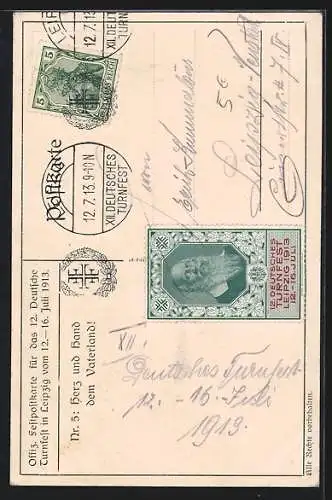 Offiz. Festpostkarte für das 12. Deutsche
Turnfest in Leipzig vom 12.–16. Juli 1913.
Nr. 5: Herz und Hand
dem Vaterland!
Postkarte
5
DEUTSCHES REICH
12.7.13.
XII.DEUTSCHES
TURNFEST
12.7.13.9-10N
XII.DEUTSCHES
TURNFEST
5
Leipzig
12. DEUTSCHES
TURNFEST
LEIPZIG 1913
12.–16. JULI
XII.
Deutsches Turnfest
12. - 16. Juli
1913.
Alle Rechte vorbehalten.